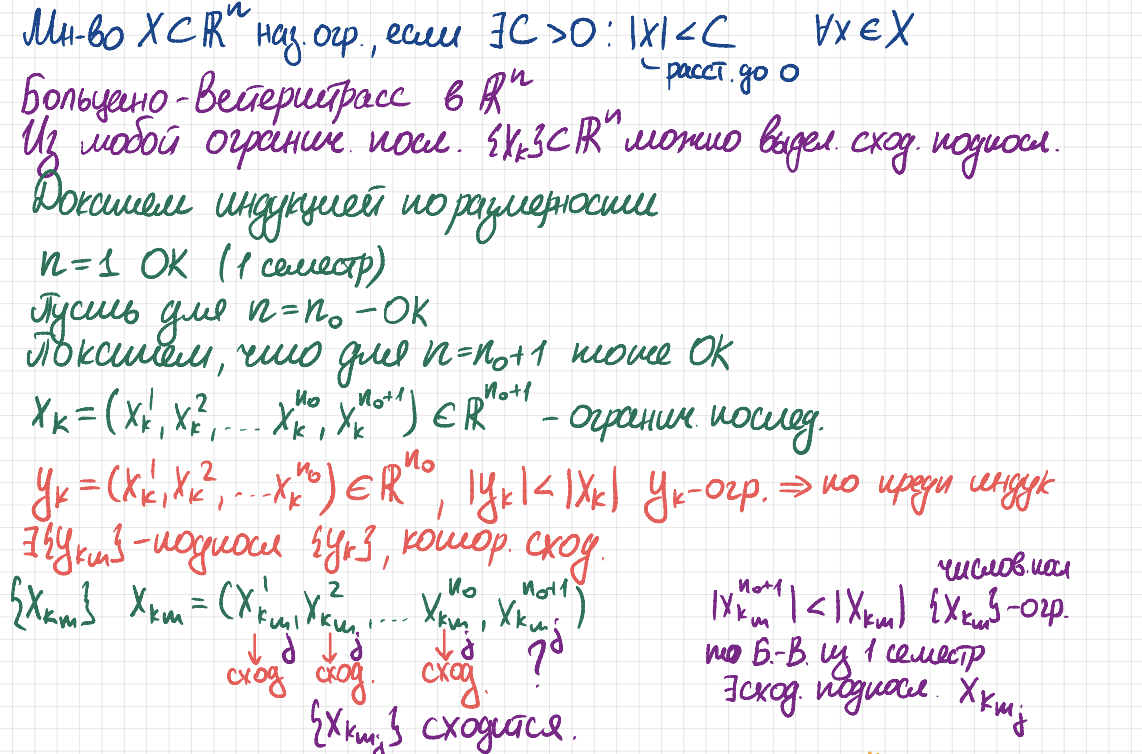 Мн-во X⊂ℝⁿ наз. огр., если ∃C>0 : |x|<C ∀x∈X
расст. до 0
Больцано-Вейерштрасс в ℝⁿ
Из любой огранич. посл. {x_k}⊂ℝⁿ можно выдел. сход. подпосл.
Докажем индукцией по размерности
n=1 ОК (1 семестр)
Пусть для n=n₀ – ОК
Покажем, что для n=n₀+1 тоже ОК
x_k=(x_k^1, x_k^2, ... x_k^{n₀}, x_k^{n₀+1}) ∈ℝ^{n₀+1} – огранич. послед.
y_k=(x_k^1, x_k^2, ... x_k^{n₀}) ∈ℝ^{n₀}, |y_k|<|x_k| y_k-огр. ⇒ по пред индук
∃{y_{k_m}} – подпосл {y_k}, котор. сход.
{x_{k_m}} x_{k_m} = (x_{k_{m_j}}^1, x_{k_{m_j}}^2, ... x_{k_{m_j}}^{n₀}, x_{k_{m_j}}^{n₀+1})
↓ сход ↓ сход. ↓ сход. ?
{x_{k_{m_j}}} сходится.
числов. посл
|x_{k_m}^{n₀+1}|<|x_{k_m}| {x_{k_m}}-огр.
по Б.-В. из 1 семестр
∃сход. подпосл. x_{k_{m_j}}